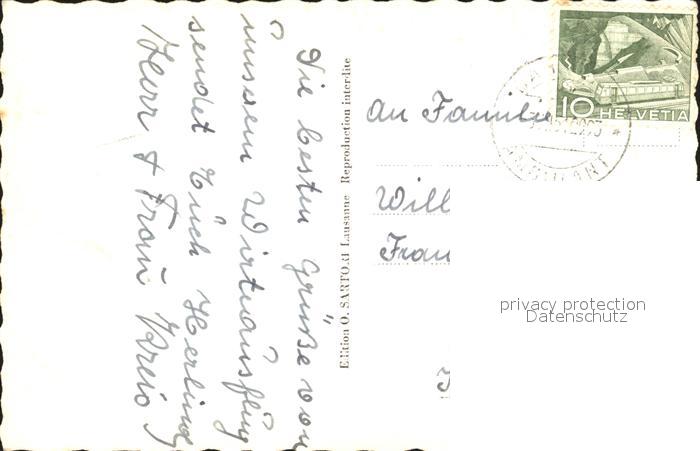 Die besten Grüße von
unserem Wirteausflug
sendet Euch
Herr & Frau
Edition O. SARTORI Lausanne Reproduction interdite
An Familie
Will
Frau
10 HELVETIA
privacy protection
Datenschutz